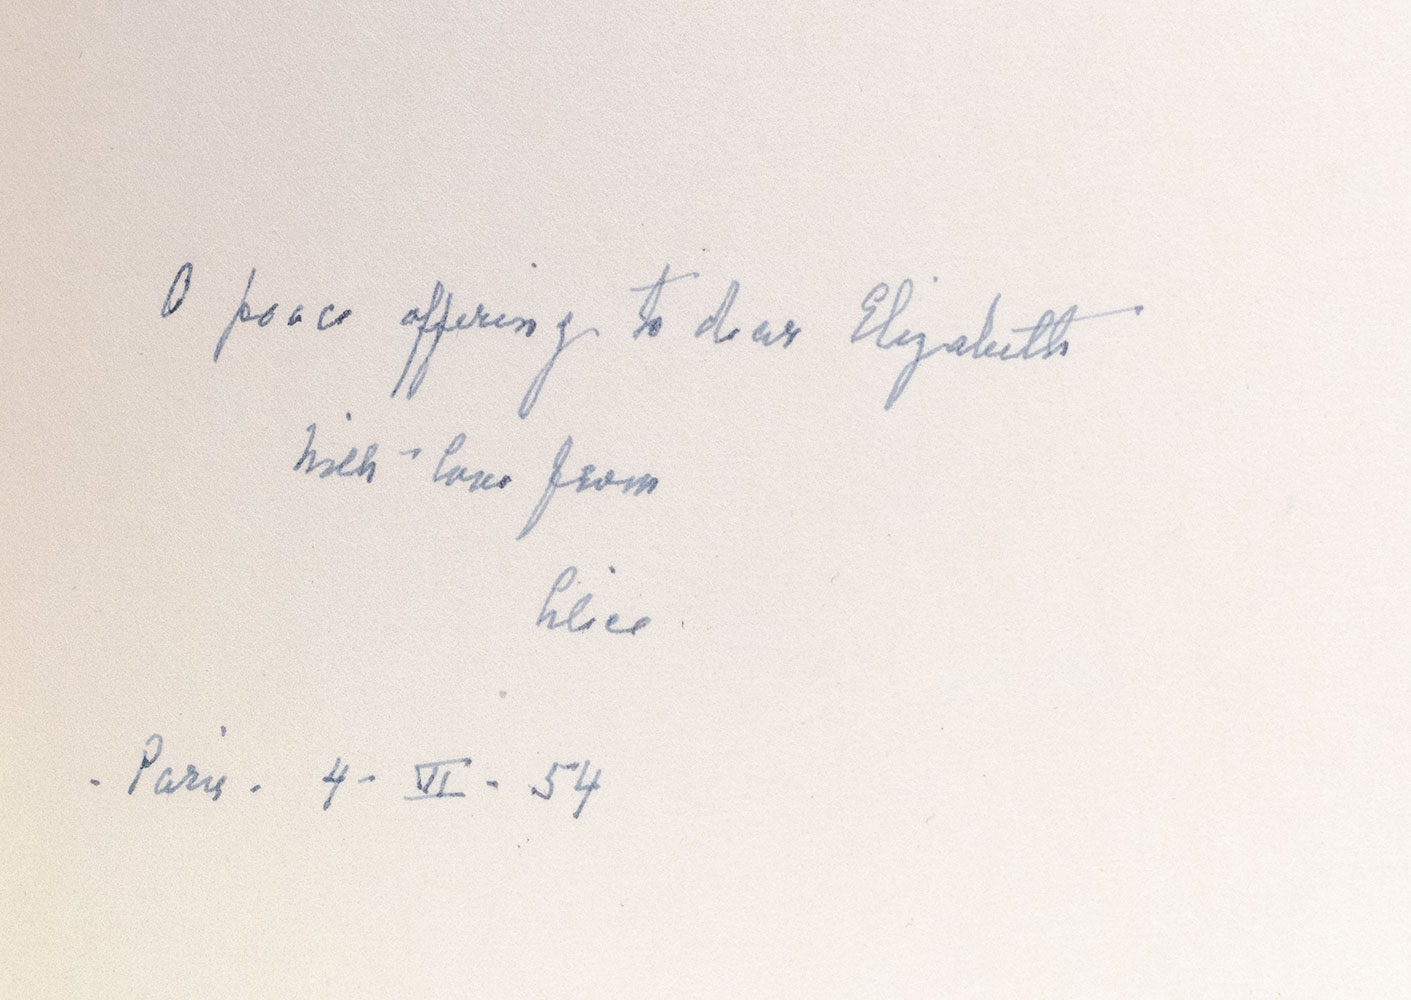 A peace offering to dear Elizabeth
with love from
Alice
- Paris. 4 - VI - 54